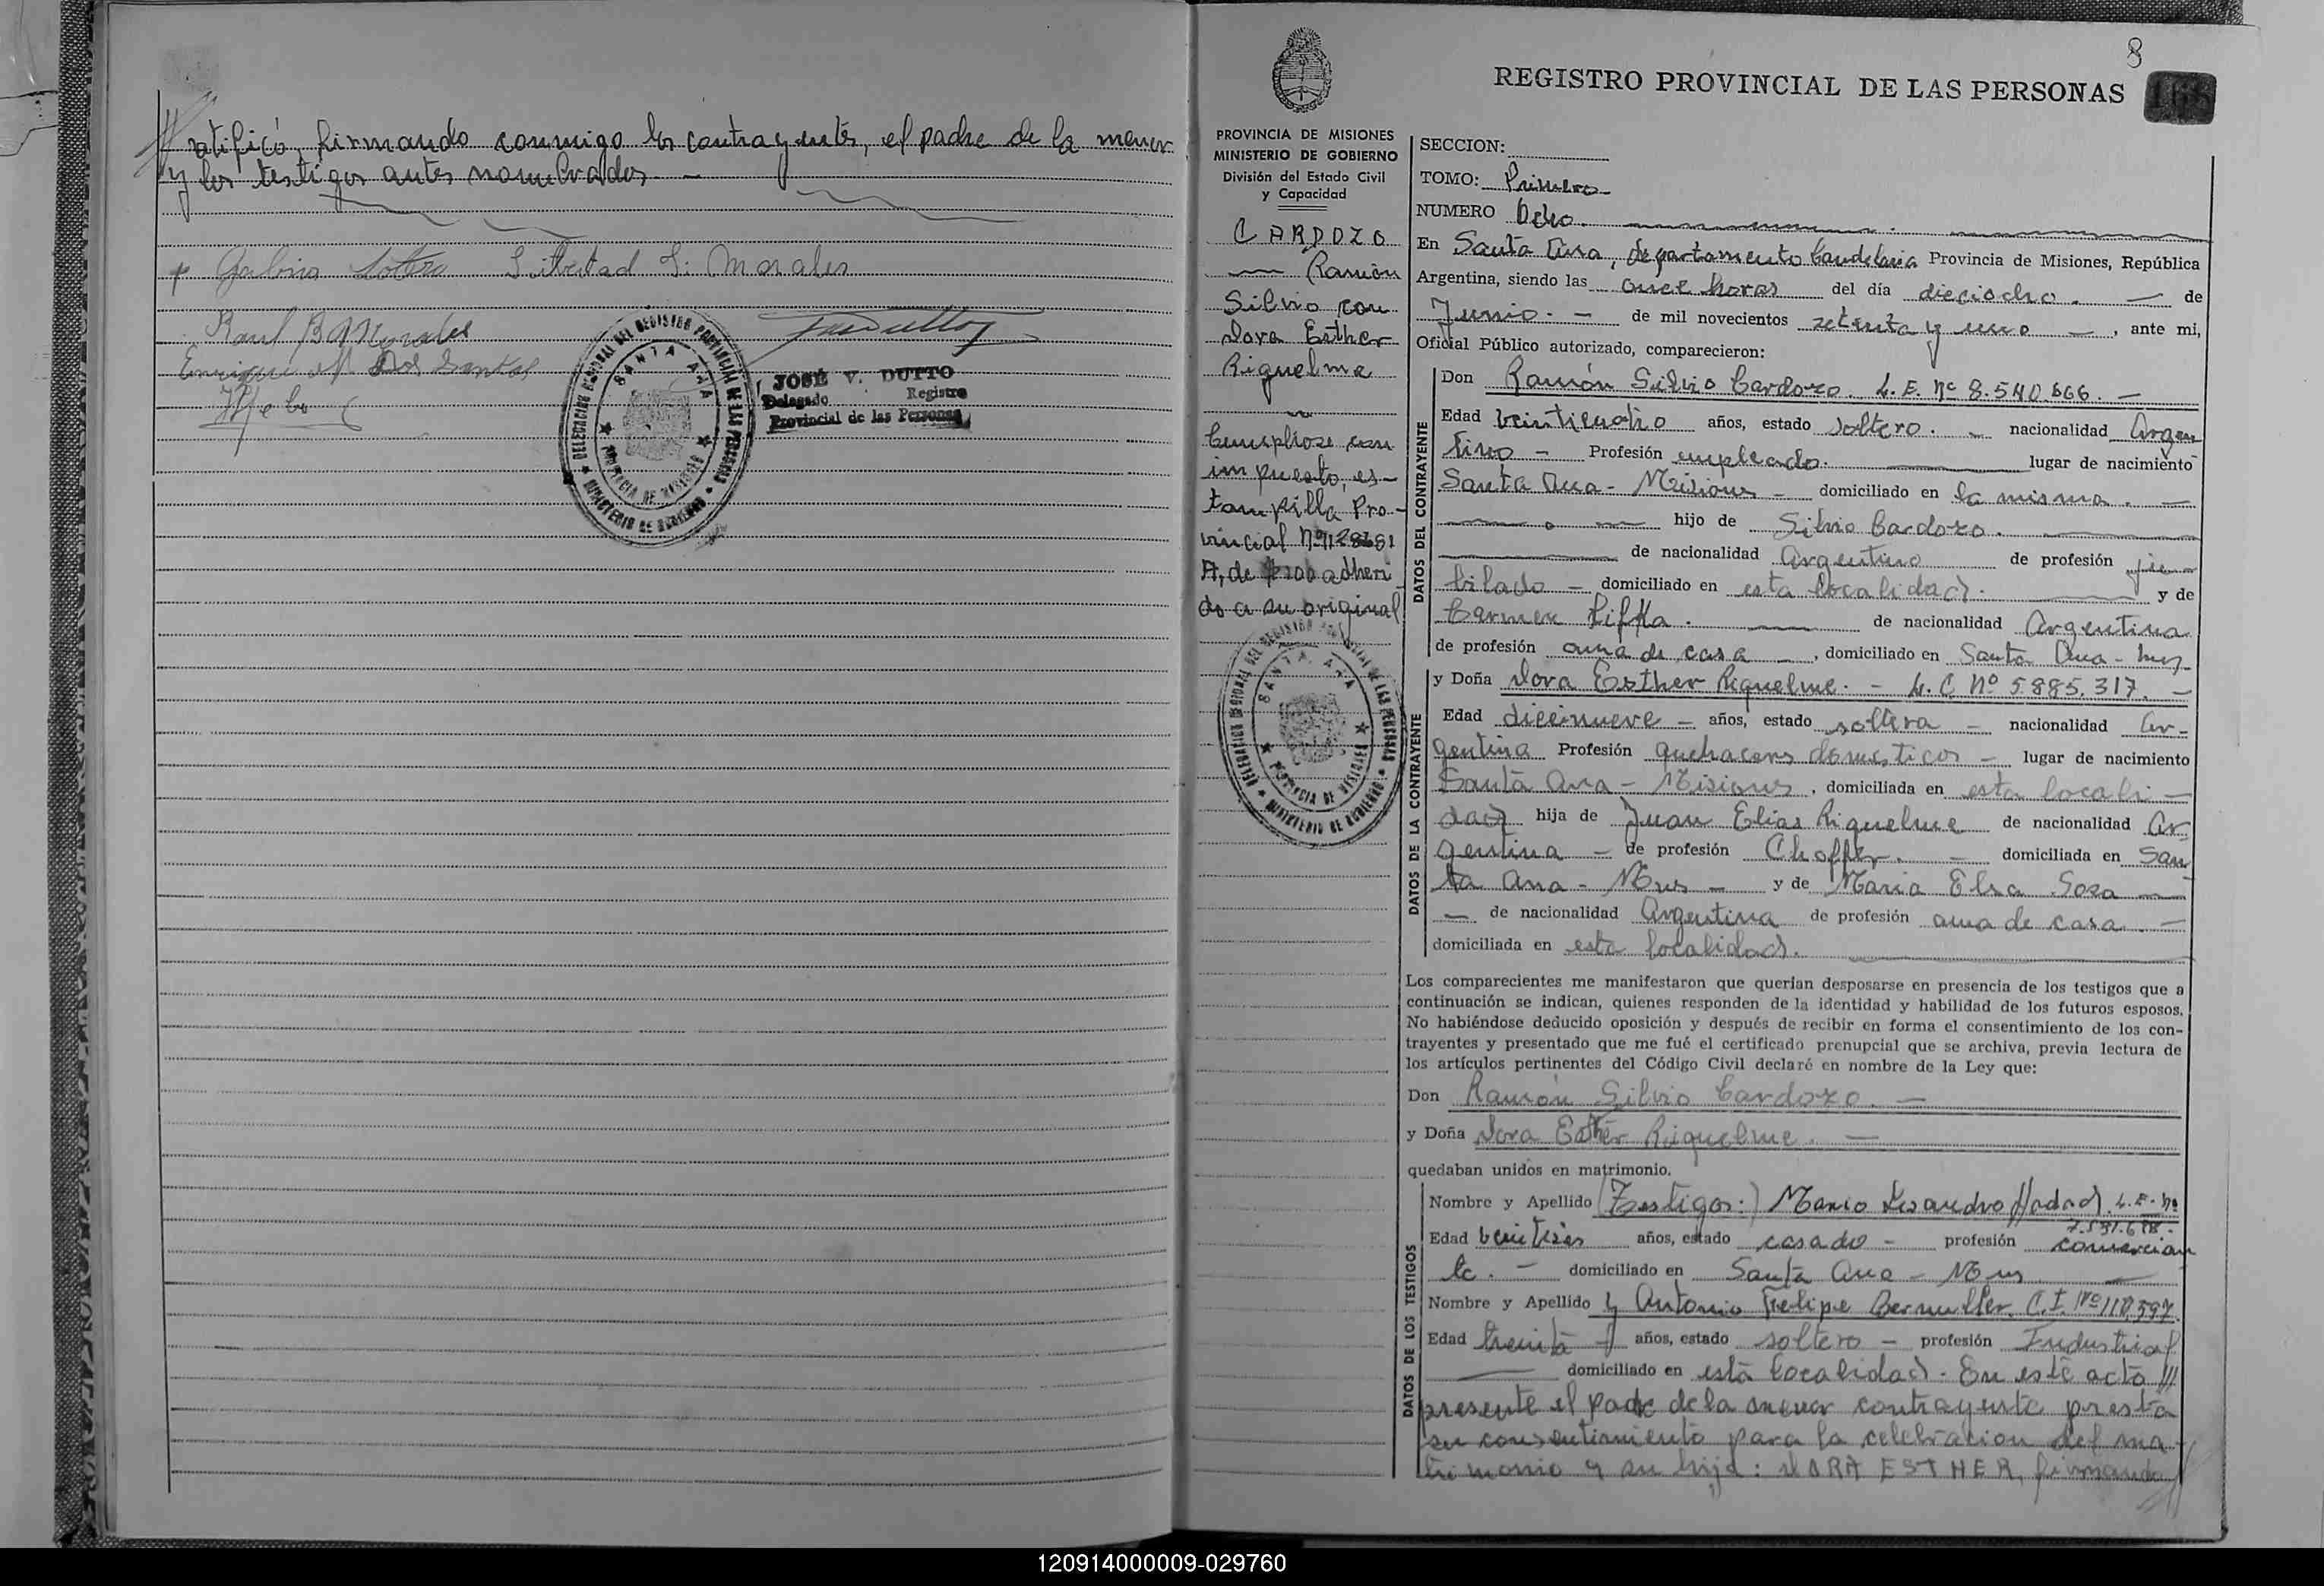 ratificó, firmando conmigo los contrayentes, el padre de la menor
y los testigos antes nombrados. —
Libertad S. Morales
Raul B Morales
Enrique M Dos Santos
DELEGACION REGIONAL DEL REGISTRO PROVINCIAL DE LAS PERSONAS
SANTA ANA
PROVINCIA DE MISIONES
MINISTERIO DE GOBIERNO
JOSÉ V. DUTTO
Delegado Registro
Provincial de las Personas
8
REGISTRO PROVINCIAL DE LAS PERSONAS
PROVINCIA DE MISIONES
MINISTERIO DE GOBIERNO
División del Estado Civil
y Capacidad
CARDOZO
— Ramón
Silvio con
Dora Esther
Riquelme
Cumplrose con
impuesto, es-
tampilla Pro-
vincial Nº
A, de $ 200 adheri
do a su original
DELEGACION REGIONAL DEL REGISTRO PROVINCIAL DE LAS PERSONAS
SANTA ANA
PROVINCIA DE MISIONES
MINISTERIO DE GOBIERNO
SECCION:
TOMO: Primero
NUMERO Ocho.
En Santa Ana, departamento Candelaria Provincia de Misiones, República
Argentina, siendo las once horas del día dieciocho. — de
Junio. — de mil novecientos setenta y uno —, ante mi,
Oficial Público autorizado, comparecieron:
DATOS DEL CONTRAYENTE
Don Ramón Silvio Cardozo. L. E. Nº 8.540.666. —
Edad veinticuatro años, estado soltero. — nacionalidad Argen
tino — Profesión empleado. lugar de nacimiento
Santa Ana - Misiones — domiciliado en la misma. —
hijo de Silvio Cardozo.
de nacionalidad Argentino de profesión ju
bilado — domiciliado en esta localidad. y de
Carmen de nacionalidad Argentina
de profesión ama de casa —, domiciliado en Santa Ana - Mnes
DATOS DE LA CONTRAYENTE
y Doña Dora Esther Riquelme. - L. C Nº 5.885.317. —
Edad diecinueve — años, estado soltera — nacionalidad Ar-
gentina Profesión quehaceres domesticos — lugar de nacimiento
Santa Ana - Misiones, domiciliada en esta locali —
dad hija de Juan Elias Riquelme de nacionalidad Ar
gentina — de profesión Choffer. — domiciliada en San
ta Ana - Mnes — y de Maria Elsa Sosa —
— de nacionalidad Argentina de profesión ama de casa. —
domiciliada en esta localidad.
Los comparecientes me manifestaron que querian desposarse en presencia de los testigos que a
continuación se indican, quienes responden de la identidad y habilidad de los futuros esposos.
No habiéndose deducido oposición y después de recibir en forma el consentimiento de los con-
trayentes y presentado que me fué el certificado prenupcial que se archiva, previa lectura de
los artículos pertinentes del Código Civil declaré en nombre de la Ley que:
Don Ramón Silvio Cardozo. —
y Doña Dora Esther Riquelme. —
quedaban unidos en matrimonio.
DATOS DE LOS TESTIGOS
Nombre y Apellido (Testigos:) Mario Lisandro Hadad. L. E. Nº
Edad años, estado casado — profesión comercian
te. — domiciliado en Santa Ana - Mnes —
Nombre y Apellido y Antonio Felipe C. I. Nº 118.597
Edad treinta años, estado soltero — profesión Industrial
domiciliado en esta localidad. En este acto ///
presente el padre de la menor contrayente presta
su consentimiento para la celebracion del ma-
trimonio y su hija: DORA ESTHER, firmando
120914000009-029760